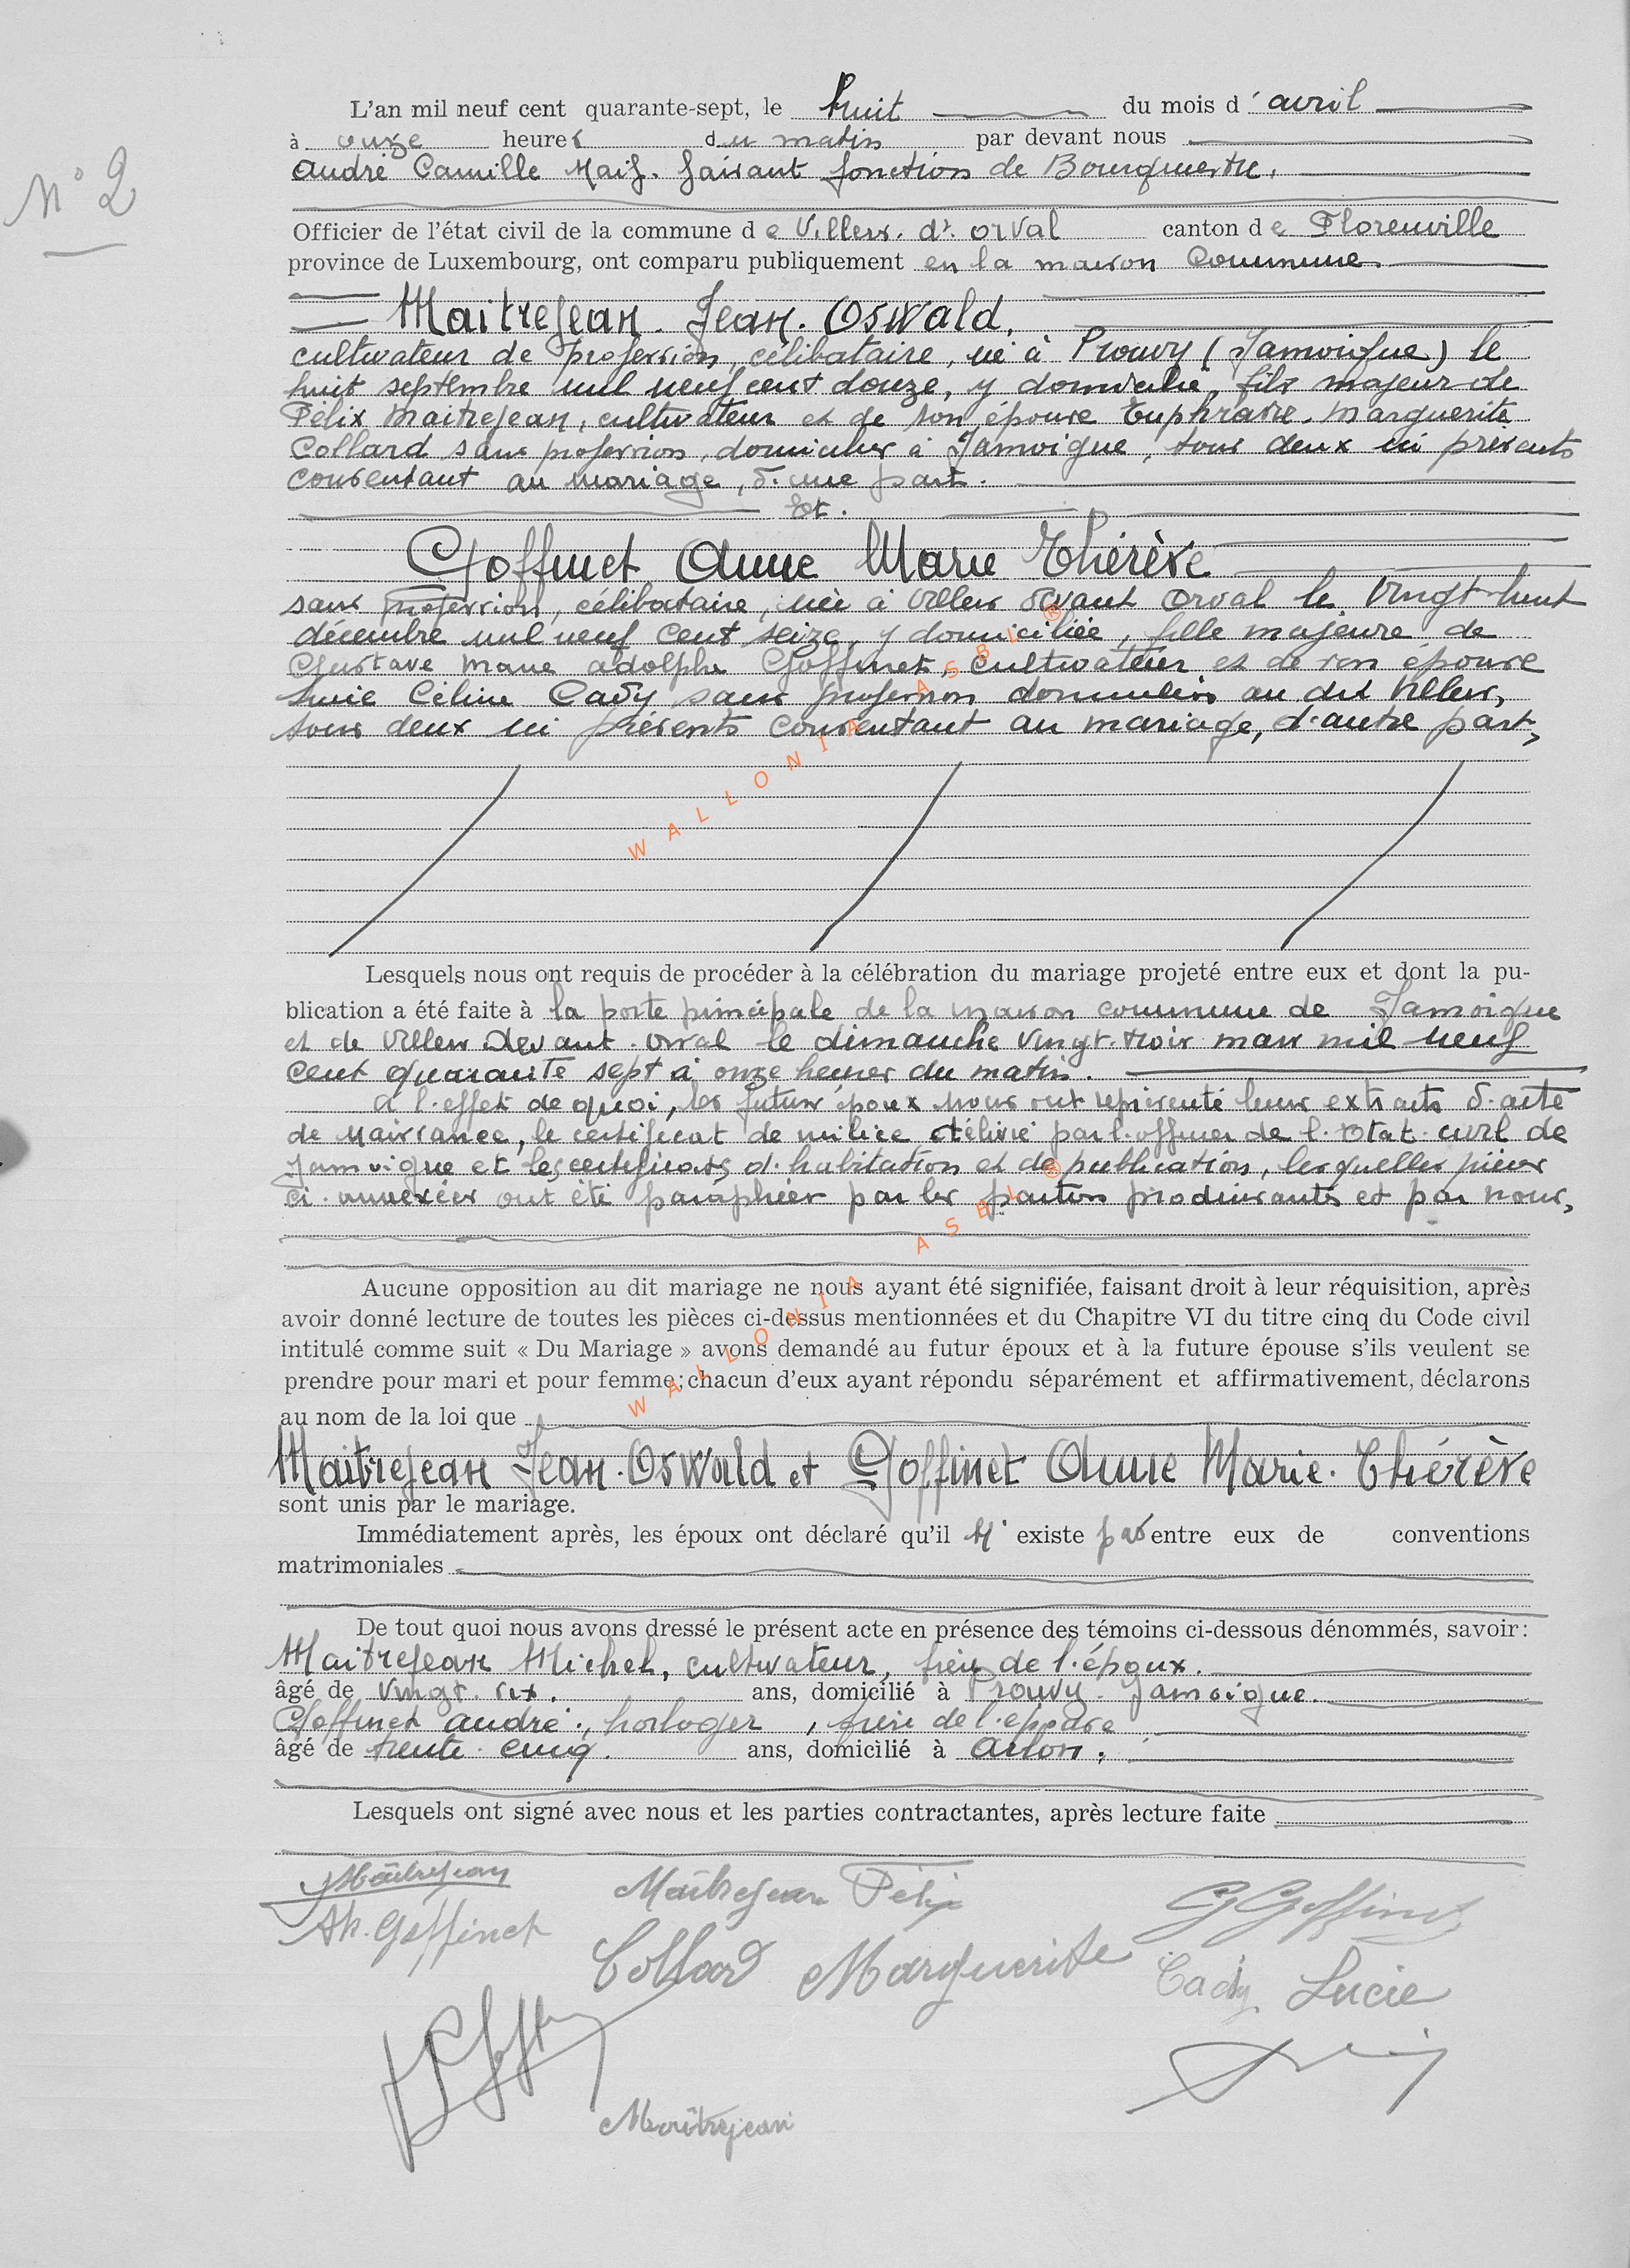 N° 2
L'an mil neuf cent quarante-sept, le huit du mois d'avril
à onze heures du matin par devant nous
André Camille Maif. faisant fonction de Bourgmestre,
Officier de l'état civil de la commune de Villers. dt. orval canton de Florenville
province de Luxembourg, ont comparu publiquement en la maison Commune.
Maitrejean. Jean. Oswald.
cultivateur de profession, célibataire, né à Prouvy (Jamoigne) le
huit septembre mil neuf cent douze, y domicilié, fils majeur de
Félix Maitrejean, cultivateur et de son épouse Euphrasie. Marguerite
Collard sans profession, domiciliés à Jamoigne, tous deux ici présents
consentant au mariage, d'une part.
Et.
Goffinet Anne Marie Thérèse
sans profession, célibataire, née à Villers devant Orval le Vingt-huit
décembre mil neuf cent seize, y domiciliée, fille majeure de
Gustave Marie Adolphe Goffinet, cultivateur et de son épouse
Lucie Céline Cady sans profession domiciliés au dit Villers,
tous deux ici présents consentant au mariage, d'autre part,
WALLONIA ASBL ®
Lesquels nous ont requis de procéder à la célébration du mariage projeté entre eux et dont la pu-
blication a été faite à la porte principale de la maison commune de Jamoigne
et de Villers Devant. Orval le dimanche vingt-trois mars mil neuf
cent quarante sept à onze heures du matin.
A l'effet de quoi, les futurs époux nous ont représenté leurs extraits d'acte
de naissance, le certificat de milice délivré par l'officier de l'Etat. civil de
Jamoigne et les certificats d'habitation et de publication, lesquelles pièces
ci-annexées ont été paraphées par les parties produisants et par nous,
Aucune opposition au dit mariage ne nous ayant été signifiée, faisant droit à leur réquisition, après
avoir donné lecture de toutes les pièces ci-dessus mentionnées et du Chapitre VI du titre cinq du Code civil
intitulé comme suit « Du Mariage » avons demandé au futur époux et à la future épouse s'ils veulent se
prendre pour mari et pour femme; chacun d'eux ayant répondu séparément et affirmativement, déclarons
WALLONIA ASBL ®
au nom de la loi que
Maitrejean Jean. Oswald et Goffinet Anne Marie. Thérèse
sont unis par le mariage.
Immédiatement après, les époux ont déclaré qu'il n'existe pas entre eux de conventions
matrimoniales
De tout quoi nous avons dressé le présent acte en présence des témoins ci-dessous dénommés, savoir:
Maitrejean Michel, cultivateur, frère de l'époux.
âgé de vingt. six. ans, domicilié à Prouvy. Jamoigne.
Goffinet André, horloger, frère de l'épouse
âgé de trente. cinq. ans, domicilié à Arlon.
Lesquels ont signé avec nous et les parties contractantes, après lecture faite
JMaîtrejean Maîtrejean Félix G Goffinet
Goffinet Collard Marguerite Cady Lucie
Maîtrejean